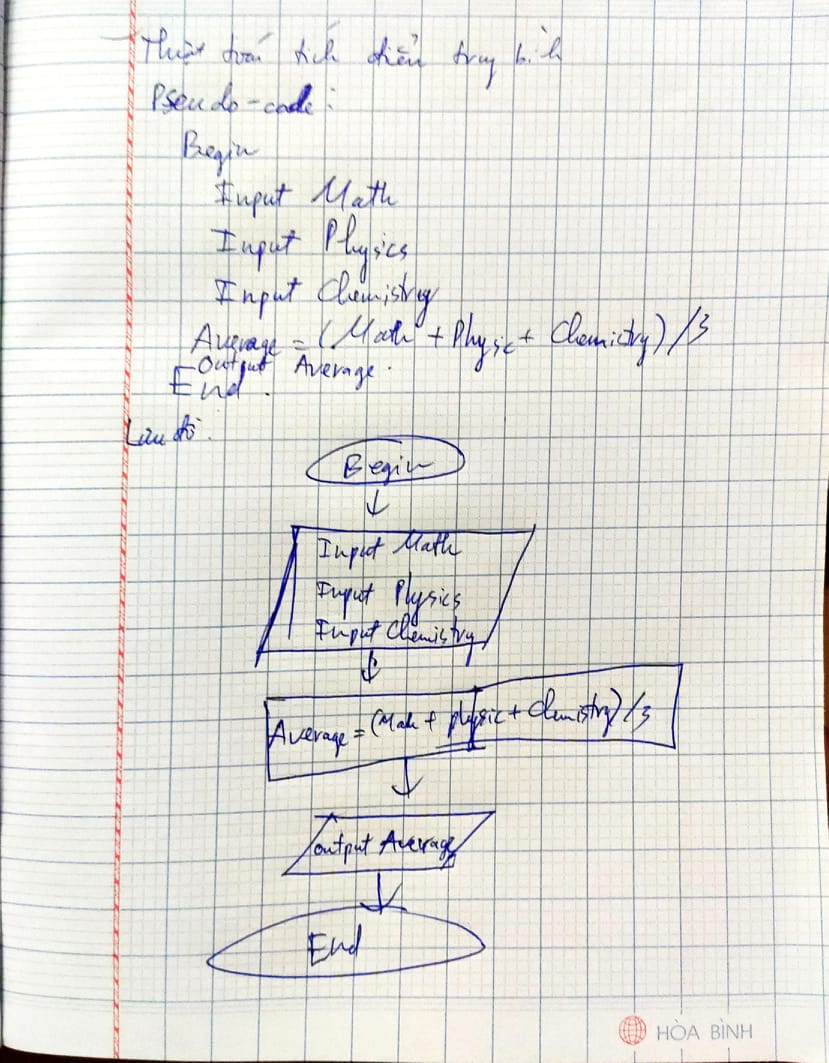 Thuật toán tích điểm trug bình
Pseudo-code:
Begin
Input Math
Input Physics
Input Chemistry
Average = (Math + Physic + Chemistry) / 3
Output Average.
End.
Lưu đồ:
Begin
Input Math
Input Physics
Input Chemistry
Average = (Math + physic + Chemistry) / 3
output Average
End
HÒA BÌNH